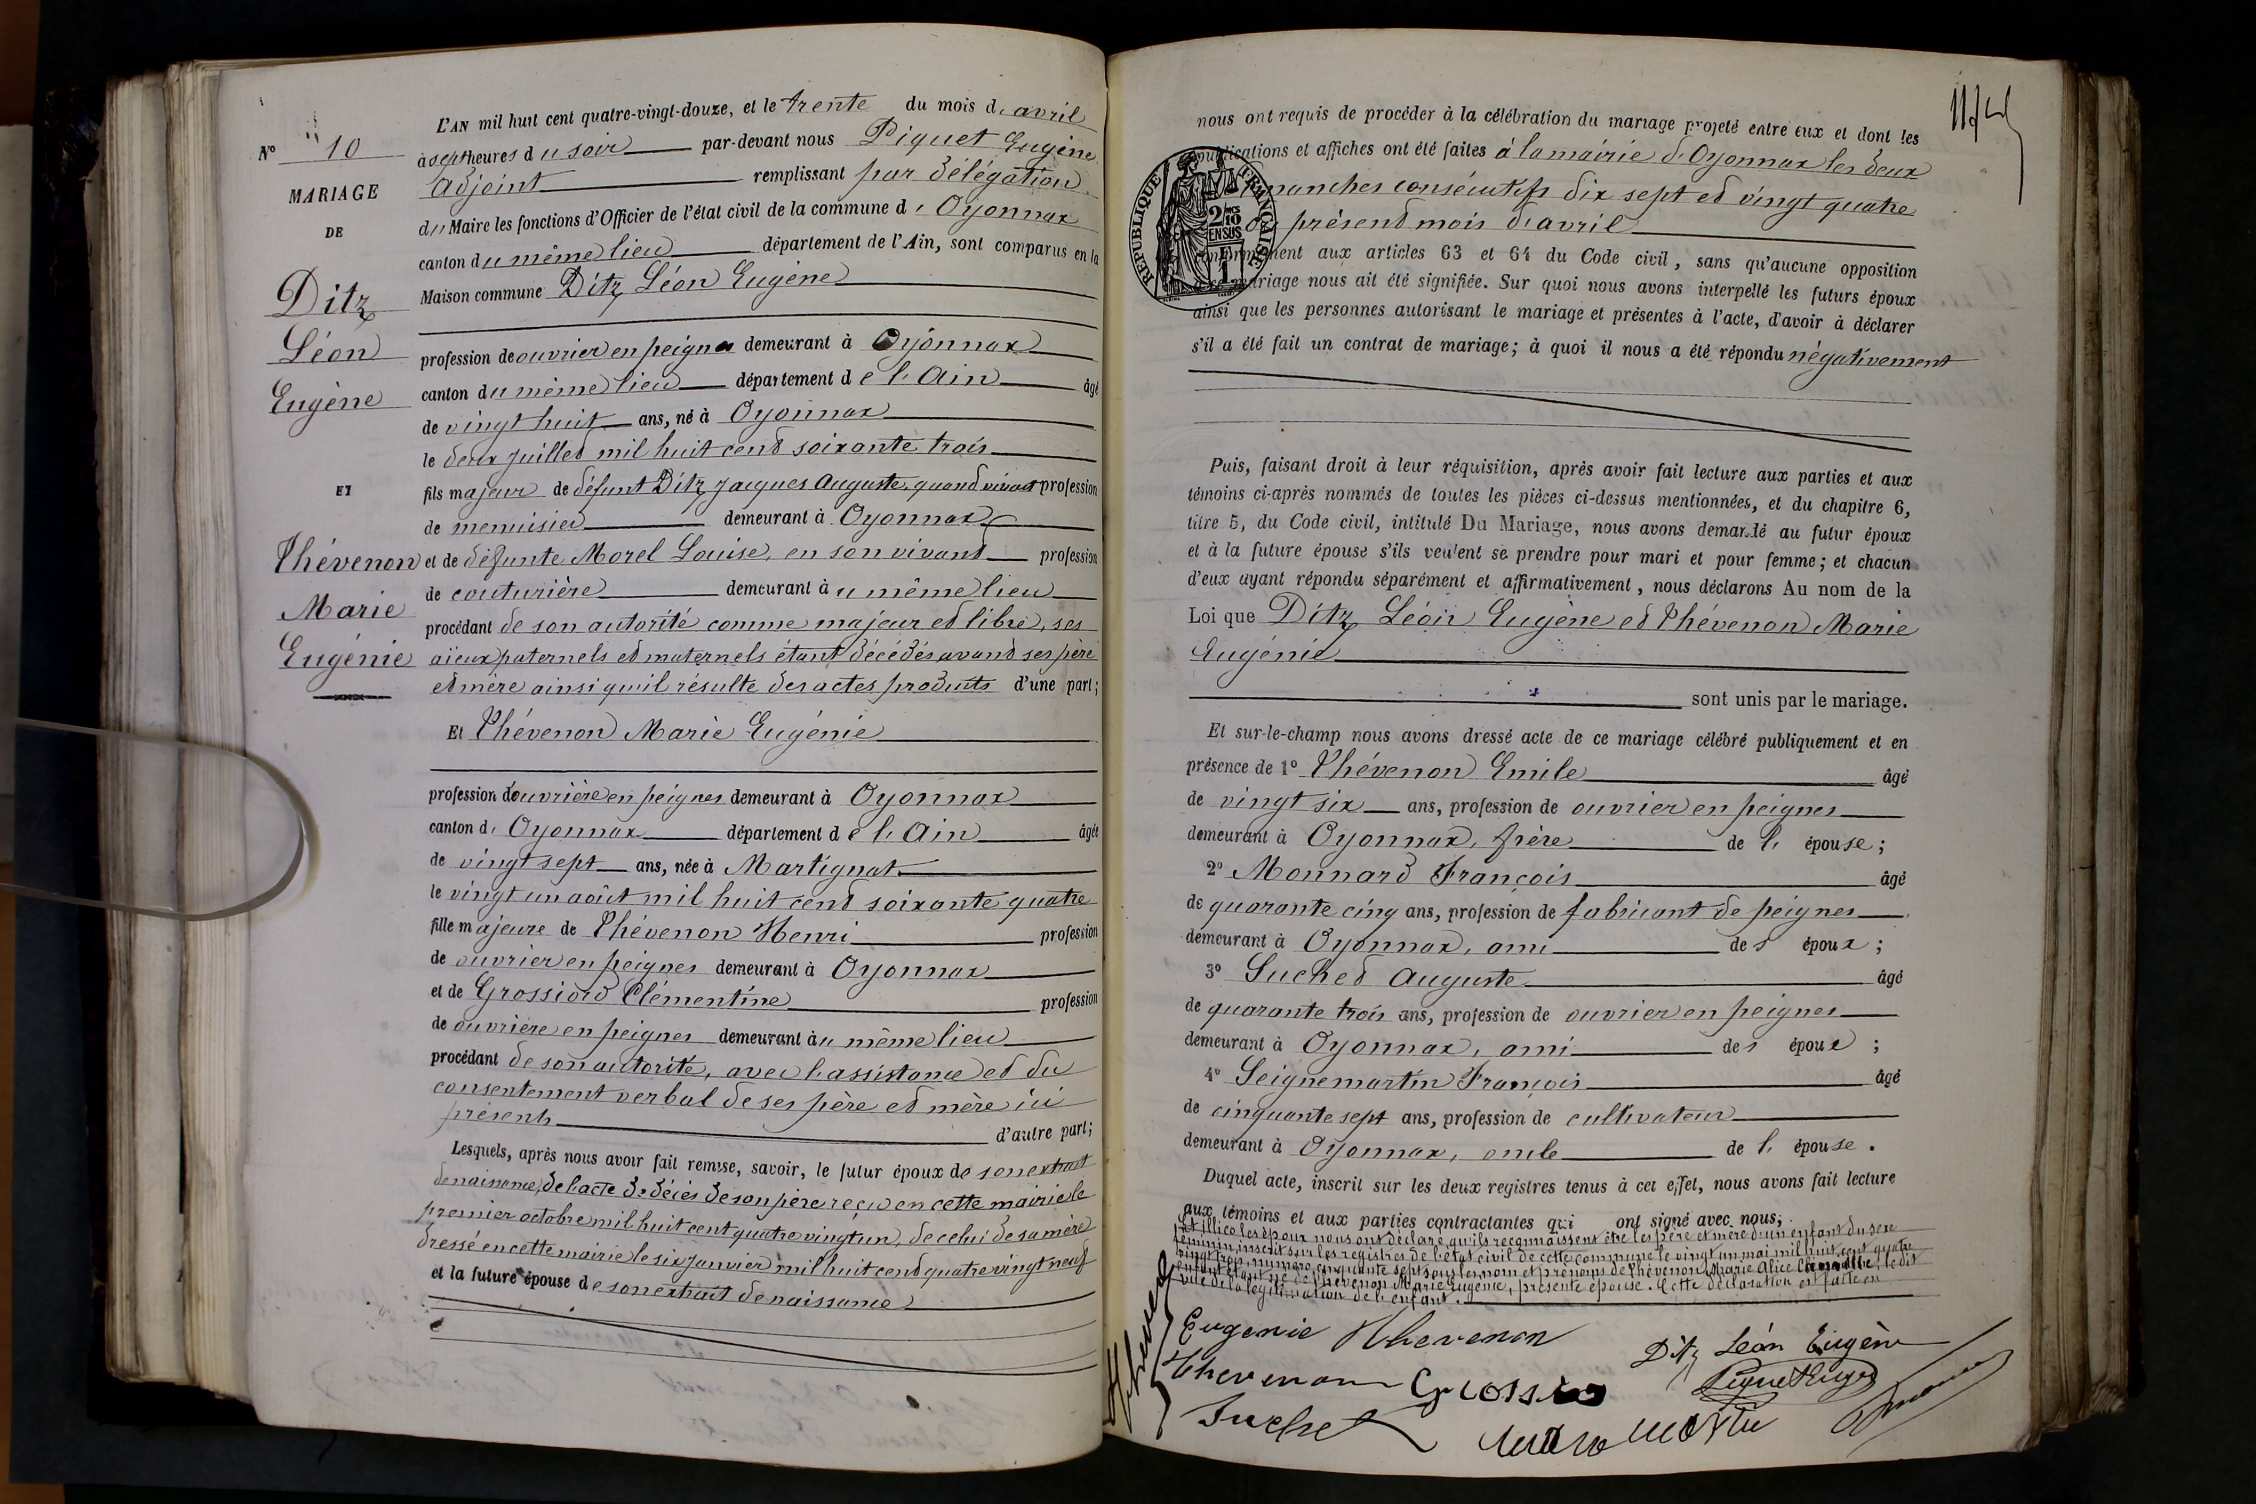 N° 10
MARIAGE
DE
Ditz
Léon
Eugène
ET
Thévenon
Marie
Eugénie
L'AN mil huit cent quatre-vingt-douze, et le trente du mois d'avril
à sept heures du soir par-devant nous Piquet Eugène
adjoint remplissant par délégation
du Maire les fonctions d'Officier de l'état civil de la commune d'Oyonnax
canton du même lieu département de l'Ain, sont comparus en la
Maison commune Ditz Léon Eugène
profession de ouvrier en peignes demeurant à Oyonnax
canton du même lieu département de l'Ain âgé
de vingt huit ans, né à Oyonnax
le deux juillet mil huit cent soixante trois
fils majeur de défunt Ditz Jacques Auguste, quand vivait profession
de menuisier demeurant à Oyonnax
et de défunte Morel Louise, en son vivant profession
de couturière demeurant au même lieu
procédant de son autorité comme majeur et libre, ses
aïeux paternels et maternels étant décédés avant ses père
et mère ainsi qu'il résulte des actes produits d'une part;
Et Thévenon Marie Eugénie
profession d'ouvrière en peignes demeurant à Oyonnax
canton d'Oyonnax département de l'Ain âgée
de vingt sept ans, née à Martignat
le vingt un août mil huit cent soixante quatre
fille majeure de Thévenon Henri profession
de ouvrier en peignes demeurant à Oyonnax
et de Grossiord Clémentine profession
de ouvrière en peignes demeurant au même lieu
procédant de son autorité, avec l'assistance et du
consentement verbal de ses père et mère ici
présents d'autre part;
Lesquels, après nous avoir fait remise, savoir, le futur époux de son extrait
de naissance, de l'acte de décès de son père reçu en cette mairie le
premier octobre mil huit cent quatre vingt un, de celui de sa mère
dressé en cette mairie le six janvier mil huit cent quatre vingt neuf
et la future épouse de son extrait de naissance
nous ont requis de procéder à la célébration du mariage projeté entre eux et dont les
publications et affiches ont été faites à la mairie d'Oyonnax les deux
dimanches consécutifs dix sept et vingt quatre
du présent mois d'avril
RÉPUBLIQUE FRANÇAISE
2/10 EN SUS
conformément aux articles 63 et 64 du Code civil, sans qu'aucune opposition
à ce mariage nous ait été signifiée. Sur quoi nous avons interpellé les futurs époux
ainsi que les personnes autorisant le mariage et présentes à l'acte, d'avoir à déclarer
s'il a été fait un contrat de mariage; à quoi il nous a été répondu négativement
Puis, faisant droit à leur réquisition, après avoir fait lecture aux parties et aux
témoins ci-après nommés de toutes les pièces ci-dessus mentionnées, et du chapitre 6,
titre 5, du Code civil, intitulé Du Mariage, nous avons demandé au futur époux
et à la future épouse s'ils veulent se prendre pour mari et pour femme; et chacun
d'eux ayant répondu séparément et affirmativement, nous déclarons Au nom de la
Loi que Ditz Léon Eugène et Thévenon Marie
Eugénie
sont unis par le mariage.
Et sur-le-champ nous avons dressé acte de ce mariage célébré publiquement et en
présence de 1° Thévenon Emile âgé
de vingt six ans, profession de ouvrier en peignes
demeurant à Oyonnax, frère de l'épouse;
2° Monnard François âgé
de quarante cinq ans, profession de fabricant de peignes
demeurant à Oyonnax, ami des époux;
3° Suchet Auguste âgé
de quarante trois ans, profession de ouvrier en peignes
demeurant à Oyonnax, ami des époux;
4° Seignemartin François âgé
de cinquante sept ans, profession de cultivateur
demeurant à Oyonnax, oncle de l'épouse.
Duquel acte, inscrit sur les deux registres tenus à cet effet, nous avons fait lecture
aux témoins et aux parties contractantes qui ont signé avec nous;
Et illico les époux nous ont déclaré qu'ils reconnaissent être les père et mère d'un enfant du sexe
féminin, inscrit sur les registres de l'état civil de cette commune le vingt un mai mil huit cent quatre
vingt numéro cinquante sept sous les nom et prénoms de Thévenon Marie Alice, ledit
enfant étant né de Thévenon Marie Eugénie, présente épouse. Cette déclaration est faite en
vue de la légitimation de l'enfant.
Eugenie Thevenon
Ditz Léon Eugène
Thevenon
Suchet